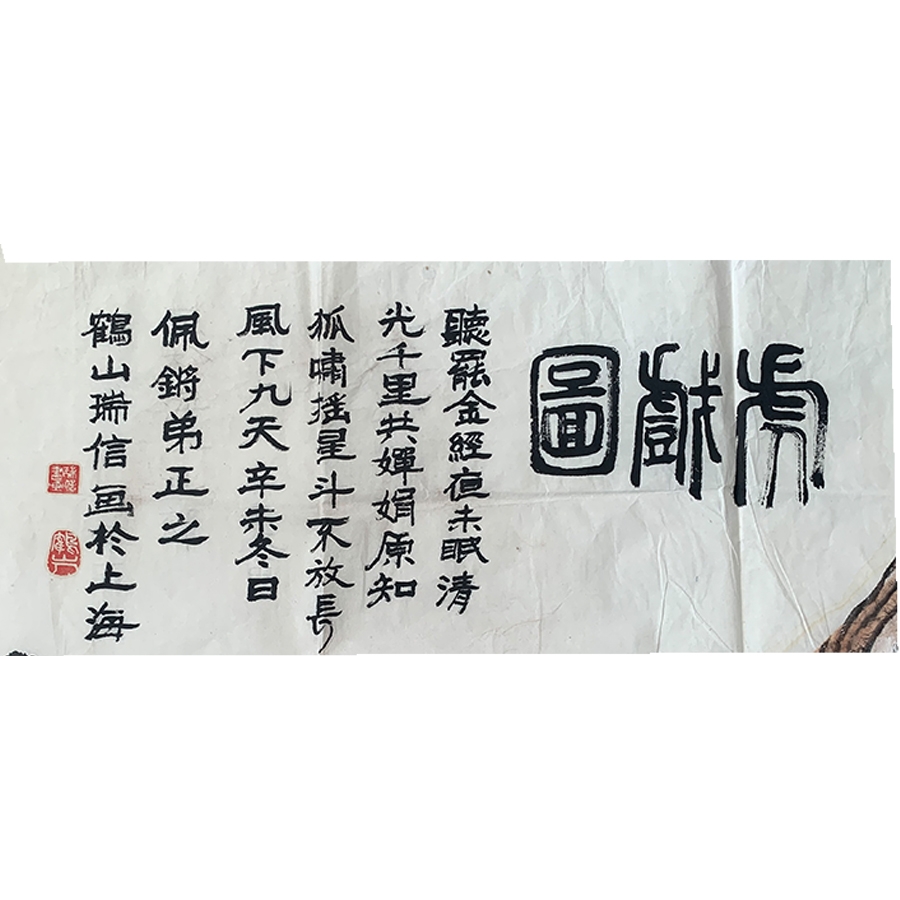 虎戲圖
聽罷金經夜未眠清
光千里共嬋娟原知
狐嘯摇星斗不放長
風下九天辛未冬日
佩鏘弟正之
鶴山瑞信画於上海
鶴山